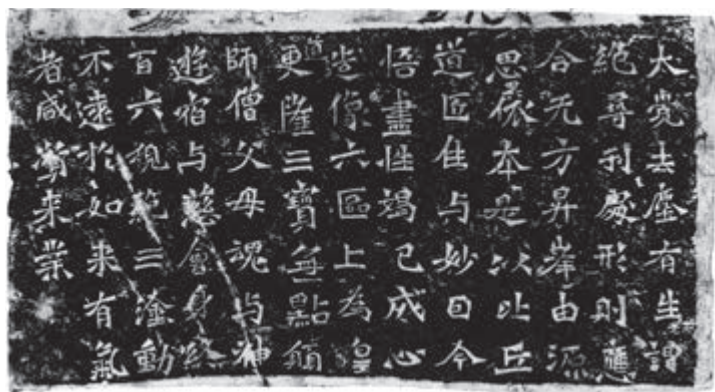 大覺去塵有生謂
絕尋刊處形則應
合无方昇岸由源
思依本是以比丘
道匠住与妙因今
悟盡性竭己成心
造像六區上為皇
道更隆三寶無點願
師僧父母魂与神
遊宿与慈會身終
百六三塗動
不遠於如来有氣
者咸資来業